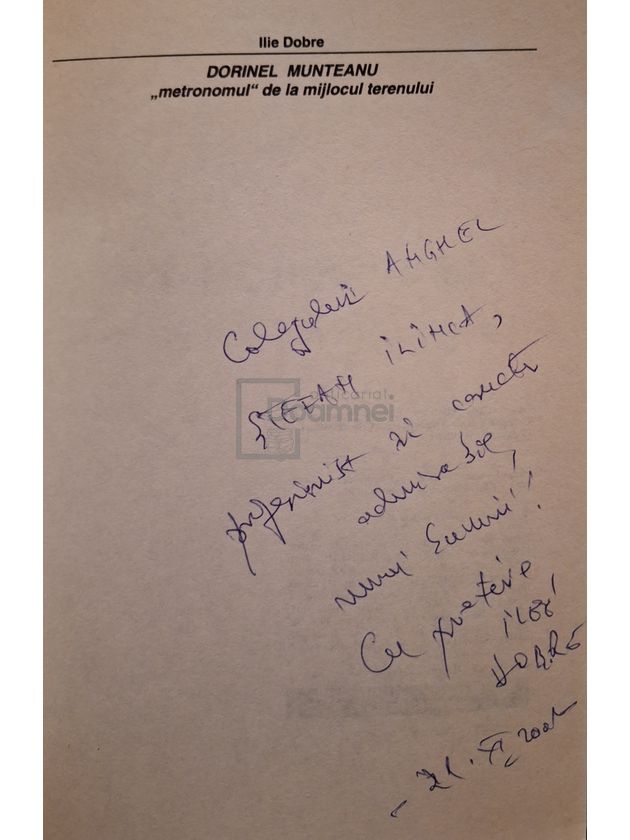 Ilie Dobre
DORINEL MUNTEANU
„metronomul“ de la mijlocul terenului
Colegului ANGHEL
ȘTEFAN ILINCA,
profesionist și caracter
admirabile,
numai bucurii!
Cu prețuire
ILIE
DOBRE
anticariat
Doamnei
- 21. XI